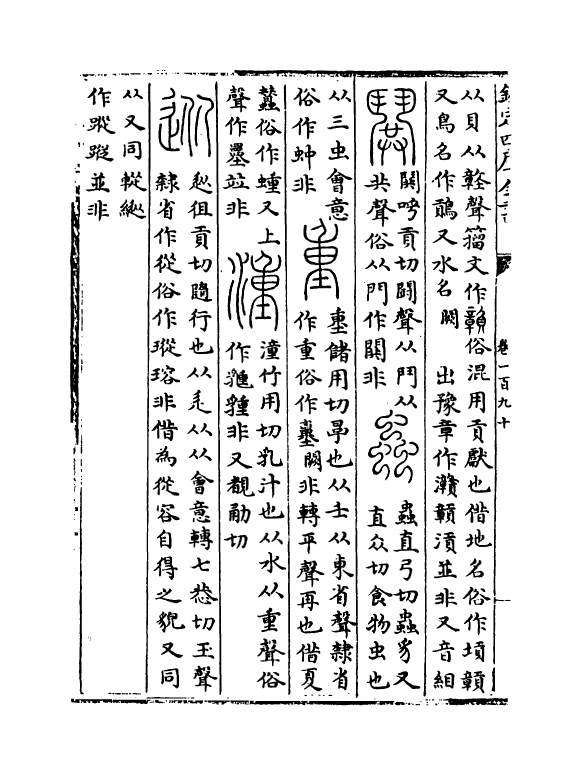 欽定四庫全書
卷一百九十
从貝从竷聲籀文作贑俗混用貢獻也借地名俗作墳贑
又鳥名作鶮又水名闕 出豫章作灨贑漬並非又音
鬨
鬨呼貢切鬪聲从鬥从
共聲俗从門作閧非
蟲
蟲直弓切蟲豸又
直众切食物虫也
从三虫會意
俗作蚛非
重
儲用切厚也从士从東省聲隸省
作重俗作闕非轉平聲再也借夏
俗作蝩又上
聲作竝非
湩
湩竹用切乳汁也从水从重聲俗
作非又覩勈切
從
徂貢切隨行也从辵从从會意轉七恭切玉聲
隸省作從俗作瑽瑢非借為從容自得之貌又同
从又同
作蹤並非